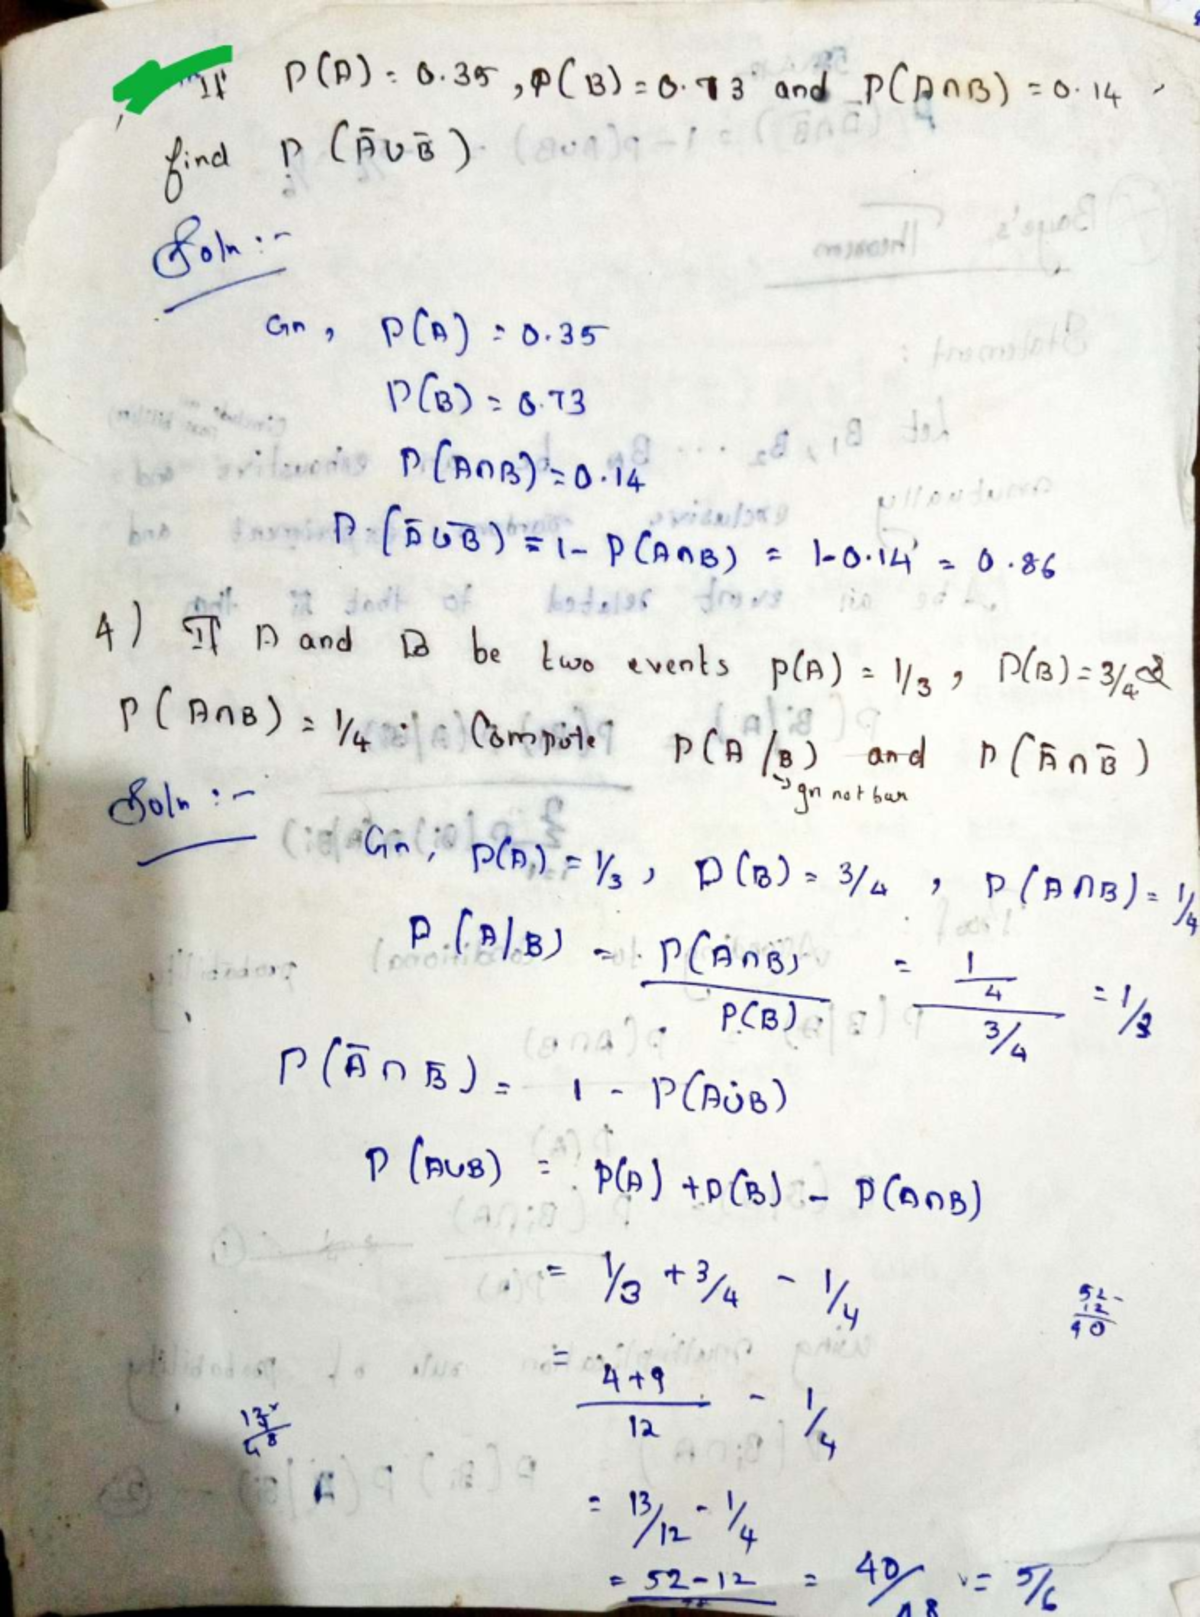 If P(A) = 0.35, P(B) = 0.73 and P(A∩B) = 0.14
find P(Ā∪B̄)
Soln :-
Gn, P(A) = 0.35
P(B) = 0.73
P(A∩B) = 0.14
P(Ā∪B̄) = 1 - P(A∩B) = 1-0.14 = 0.86
4) If A and B be two events P(A) = 1/3, P(B) = 3/4 &
P(A∩B) = 1/4. Compute P(A/B) and P(Ā∩B̄)
→ gn not bar
Soln :-
Gn, P(A) = 1/3, P(B) = 3/4, P(A∩B) = 1/4
P(A/B) = P(A∩B)/P(B) = 1/4 / 3/4 = 1/3
P(Ā∩B̄) = 1 - P(A∪B)
P(A∪B) = P(A) + P(B) - P(A∩B)
= 1/3 + 3/4 - 1/4
52-
12
40
= 4+9/12 - 1/4
= 13/12 - 1/4
= 52-12 = 40/48 = 5/6